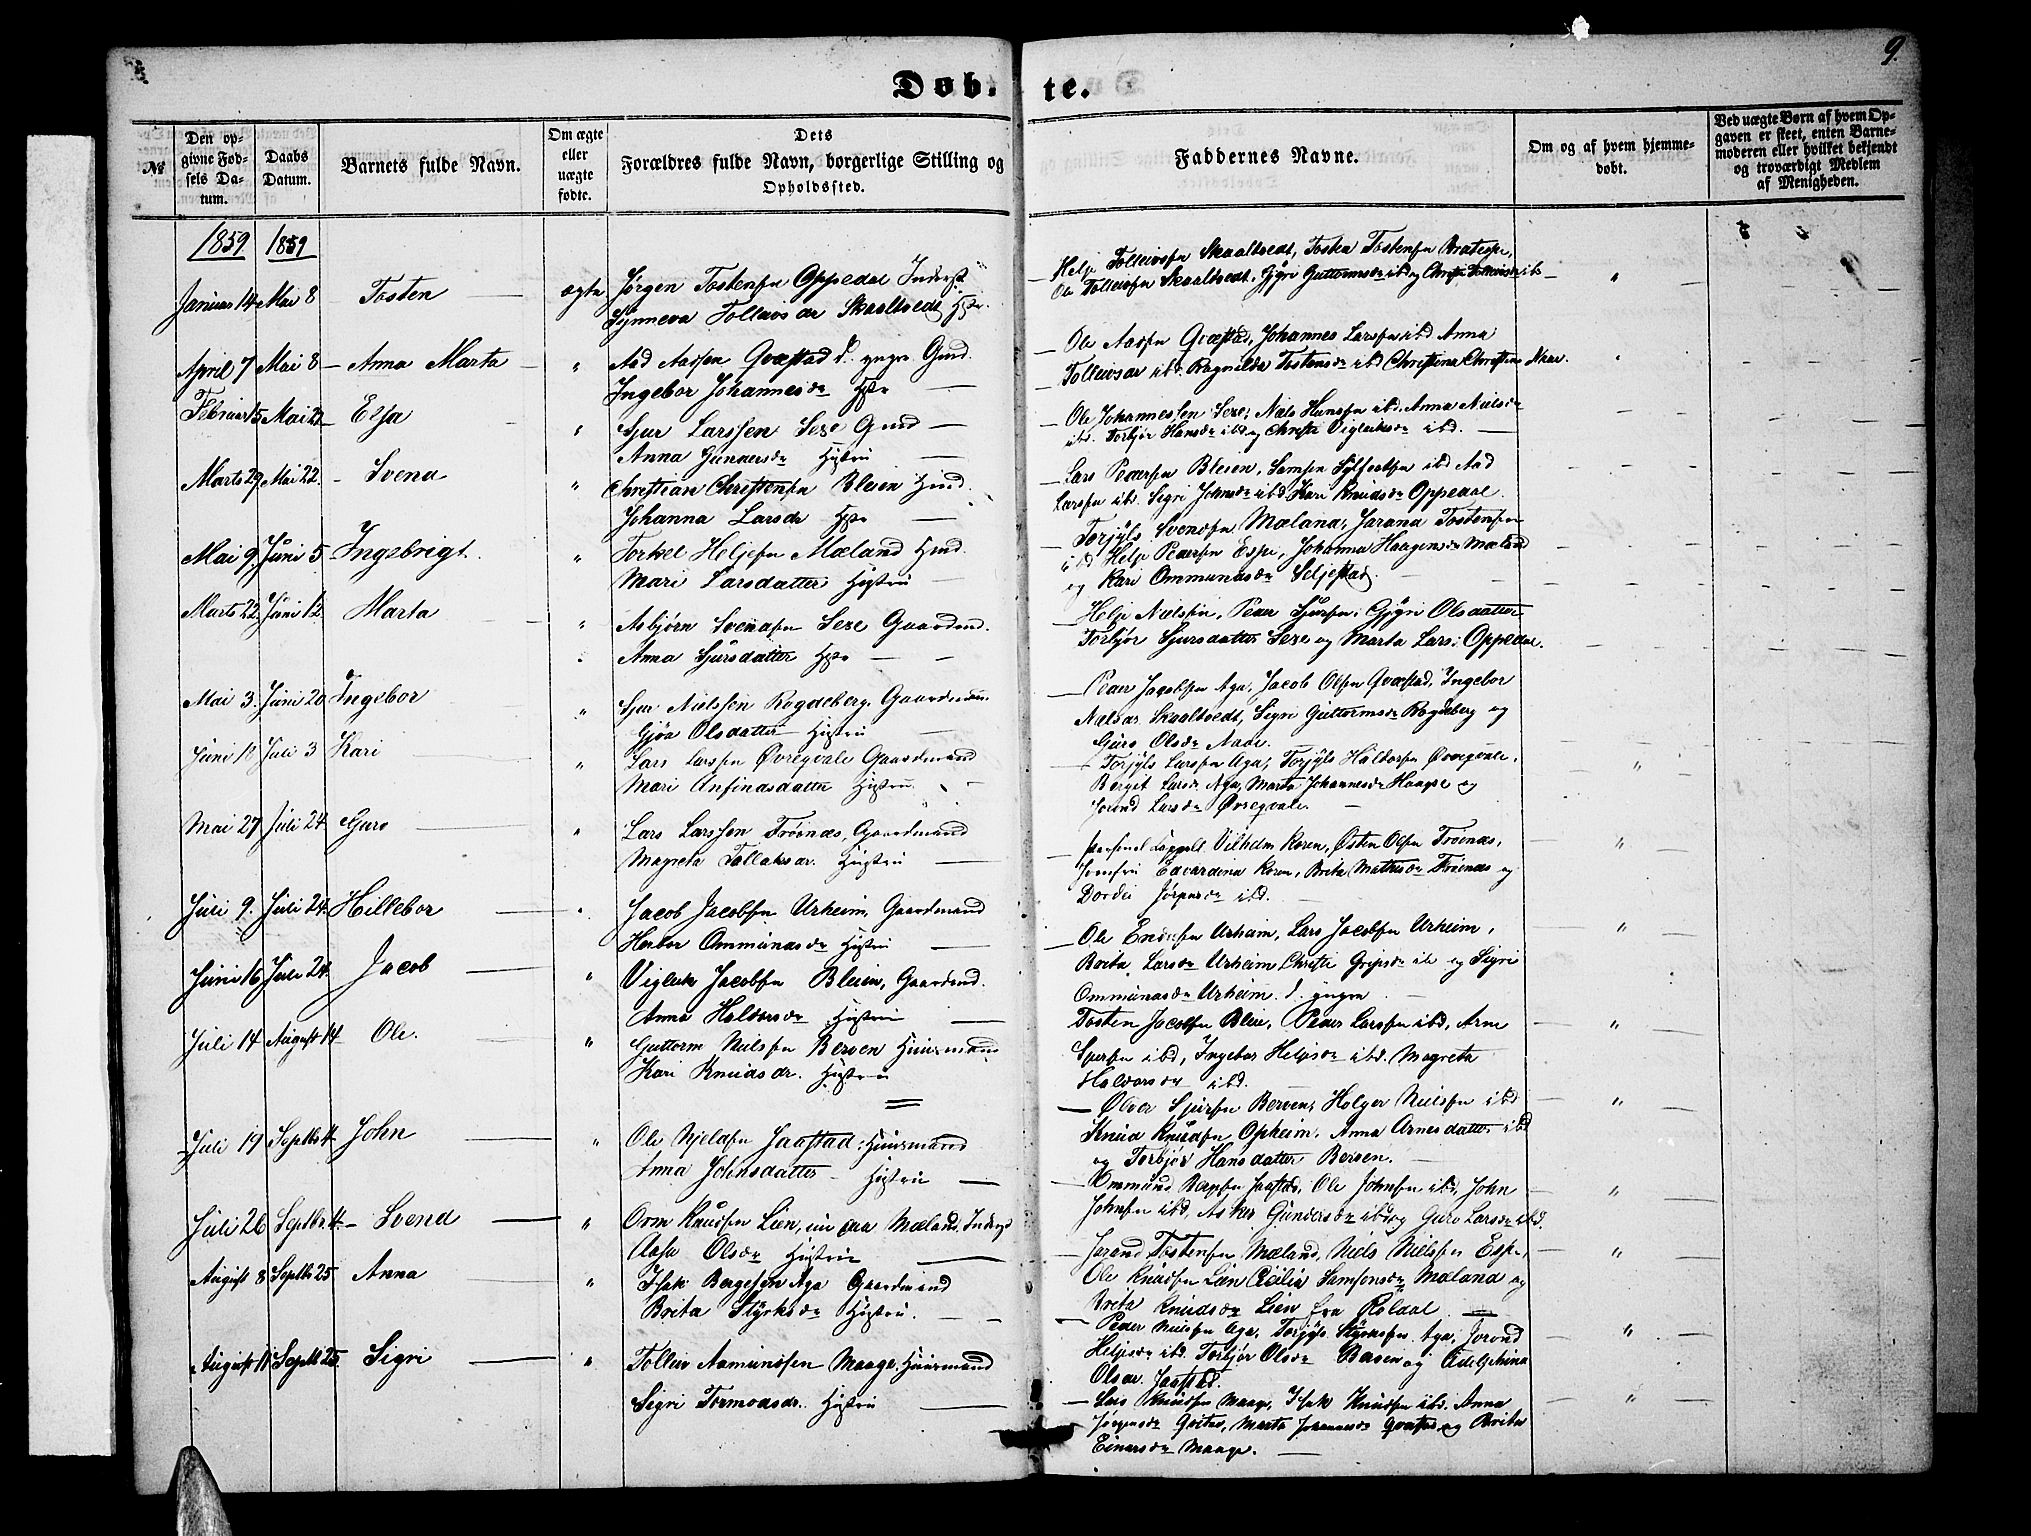 9.
Døbte.
№
Den opgivne Fødsels Datum.
Daabs Datum.
Barnets fulde Navn.
Om ægte eller uægte fødte.
Dets Forældres fulde Navn, borgerlige Stilling og Opholdssted.
Faddernes Navne.
Om og af hvem hjemmedøbt.
Ved uægte Børn af hvem Opgaven er skeet, enten Barnemoderen eller hvilket bekjendt og troværdigt Medlem af Menigheden.
1859 1859
Januar 14 Mai 8 Tosten ægte Jørgen Tostensen Oppedal Inderst
Synneva Tolleivsdr Skaaltvedt Hst.
Helje Tolleivsen Skaaltvedt, Tosten
Ole Tolleivsen Skaaltvedt, Gjøri Guttormsdr ibd og
April 7 Mai 8 Anna Marta " Aad Aadsen Qvæstad d. yngre Gmd.
Ingebor Johannesdr Hst
Ole Aadsen Qvæstad, Johannes Larssen ibd Anna
Tolleivsdr ibd. Ragnilda Tostensdr ibd Christina Christensdr
Februar 15 Mai 22 Elsa " Sjur Larssen Sexe Gmd
Anna Gunnarsdr Hustru
Ole Johannessen Sexe, Niels Hanssen ibd. Anna Nielsdr
ibd. Torbjør Hansdr ibd og Christi Vigleiksdr ibd.
Marts 29 Mai 22. Svend " Christian Christensen Bleien Hmd.
Johanna Larsdr Hst
Lars Pedersen Bleien, Samson ibd Aad
Larssen ibd. Sigri Johnsdr ibd. Kari Knudsdr Oppedal.
Mai 9. Juni 5 Ingebrigt. " Torkel Heljesen Mæland Hmd.
Mari Larsdatter Hustru
Torjyls Svendsen Mæland, Jarand Tostensen
ibd Helje Pedersen Espe, Johanna Haagensdr Mæland
og Kari Ommundsdr Seljestad.
Marts 22. Juni 12 Marta " Asbjørn Svendsen Sexe Gaardmd.
Anna Sjursdatter Hst
Helje Nielsen, Peder Sjursen, Gjøri Olsdatter
Torbjør Sjursdatter Sexe og Marta Lars: Oppedal.
Mai 3. Juni 20 Ingebor " Sjur Nielssen Rogdeberg. Gaardmand.
Gjøa Olsdatter Hustru
Peder Jacobsen Aga, Jacob Olsen Qvæstad, Ingebor
Nielsdr Skaaltvedt, Sigri Guttormsdr Rogdeberg og
Guro Olsdr
Juni 18 Juli 3 Kari " Lars Larssen Øvregvale Gaardmand
Mari Anfindsdatter Hustru
Torjyls Larssen Aga, Torjyls Haldorsen Øvregvale,
Bergit Larsdr Aga, Marta Johannesdr Haagse og
Jorond Larsdr Øvregvale.
Mai 27 Juli 24 Guro " Lars Larssen Trøenæs, Gaardmand
Magreta Tollaksdr. Hustru
personel Cappell. Vilhelm Koren, Østen Olsen Trøenæs,
Jomfru Edvardina Koren, Brita Mathisdr Trøenæs og
Dordei Jørgensdr ibd.
Juli 9. Juli 24. Hillebor " Jacob Jacobsen Urheim, Gaardmand
Herbor Ommundsdr Hustru
Ole Endresen Urheim, Lars Jacobsen Urheim,
Brita Larsdr Urheim Christi Gripsdr ibd og Sigri
Ommundsdr Urheim d. yngre
Juni 16 Juli 24. Jacob " Vigleik Jacobsen Bleien, Gaardmd.
Anna Haldorsdr Hustru
Tosten Jacobsen Bleie, Peder Larssen ibd, Arne
ibd, Ingebor Heljesdr ibd. Magreta
Haldorsdr ibd.
Juli 14 August 14 Ole. " Guttorm Nielssen Berven Huusmand
Kari Knudsdr. Hustru
Ølver Sjursen Berven, Holger Nielssen ibd
Knud Knudsen Opheim, Anna Arnesdatter ibd
og Torbjør Hansdatter Berven.
Juli 19 Septbr 4. John " Ole Kjeldsen Jaastad, Huusmand
Anna Johnsdatter Hustru
Ommund Jaastad, Ole Johnsen ibd, John
Johnsen ibd, Gundersdr ibd og Guro Larsdr ibd.
Juli 26 Septbr 4. Svend " Orm Knudsen Lien, nu paa Mæland. Inderst
Aase Olsdr Hustru
Jarand Tostensen Mæland, Niels Nielsen Espe,
Ole Knudsen Lien Cicilia Samsonsdr Mæland og
Brita Knudsdr Lien fra Røldal
August 8 Septbr 25 Anna " Isak Bergesen Aga Gaardmand
Brita Styrksdr Hustru.
Peder Nielsen Aga, Torjyls Styrksen Aga, Jorond
Heljesdr ibd. Torbjør Olsdr og Adelphina
Olsdr Jaastad.
August 11 Septbr 25. Sigri " Tolleiv Aamundsen Maage, Huusmand
Sigri Tormodsdr. Hustru
Lars Knudsen Maage, Isak Knudsen ibd. Anna
Jørgensdr Marta Johannesdr og Brita
Einarsdr Maage.